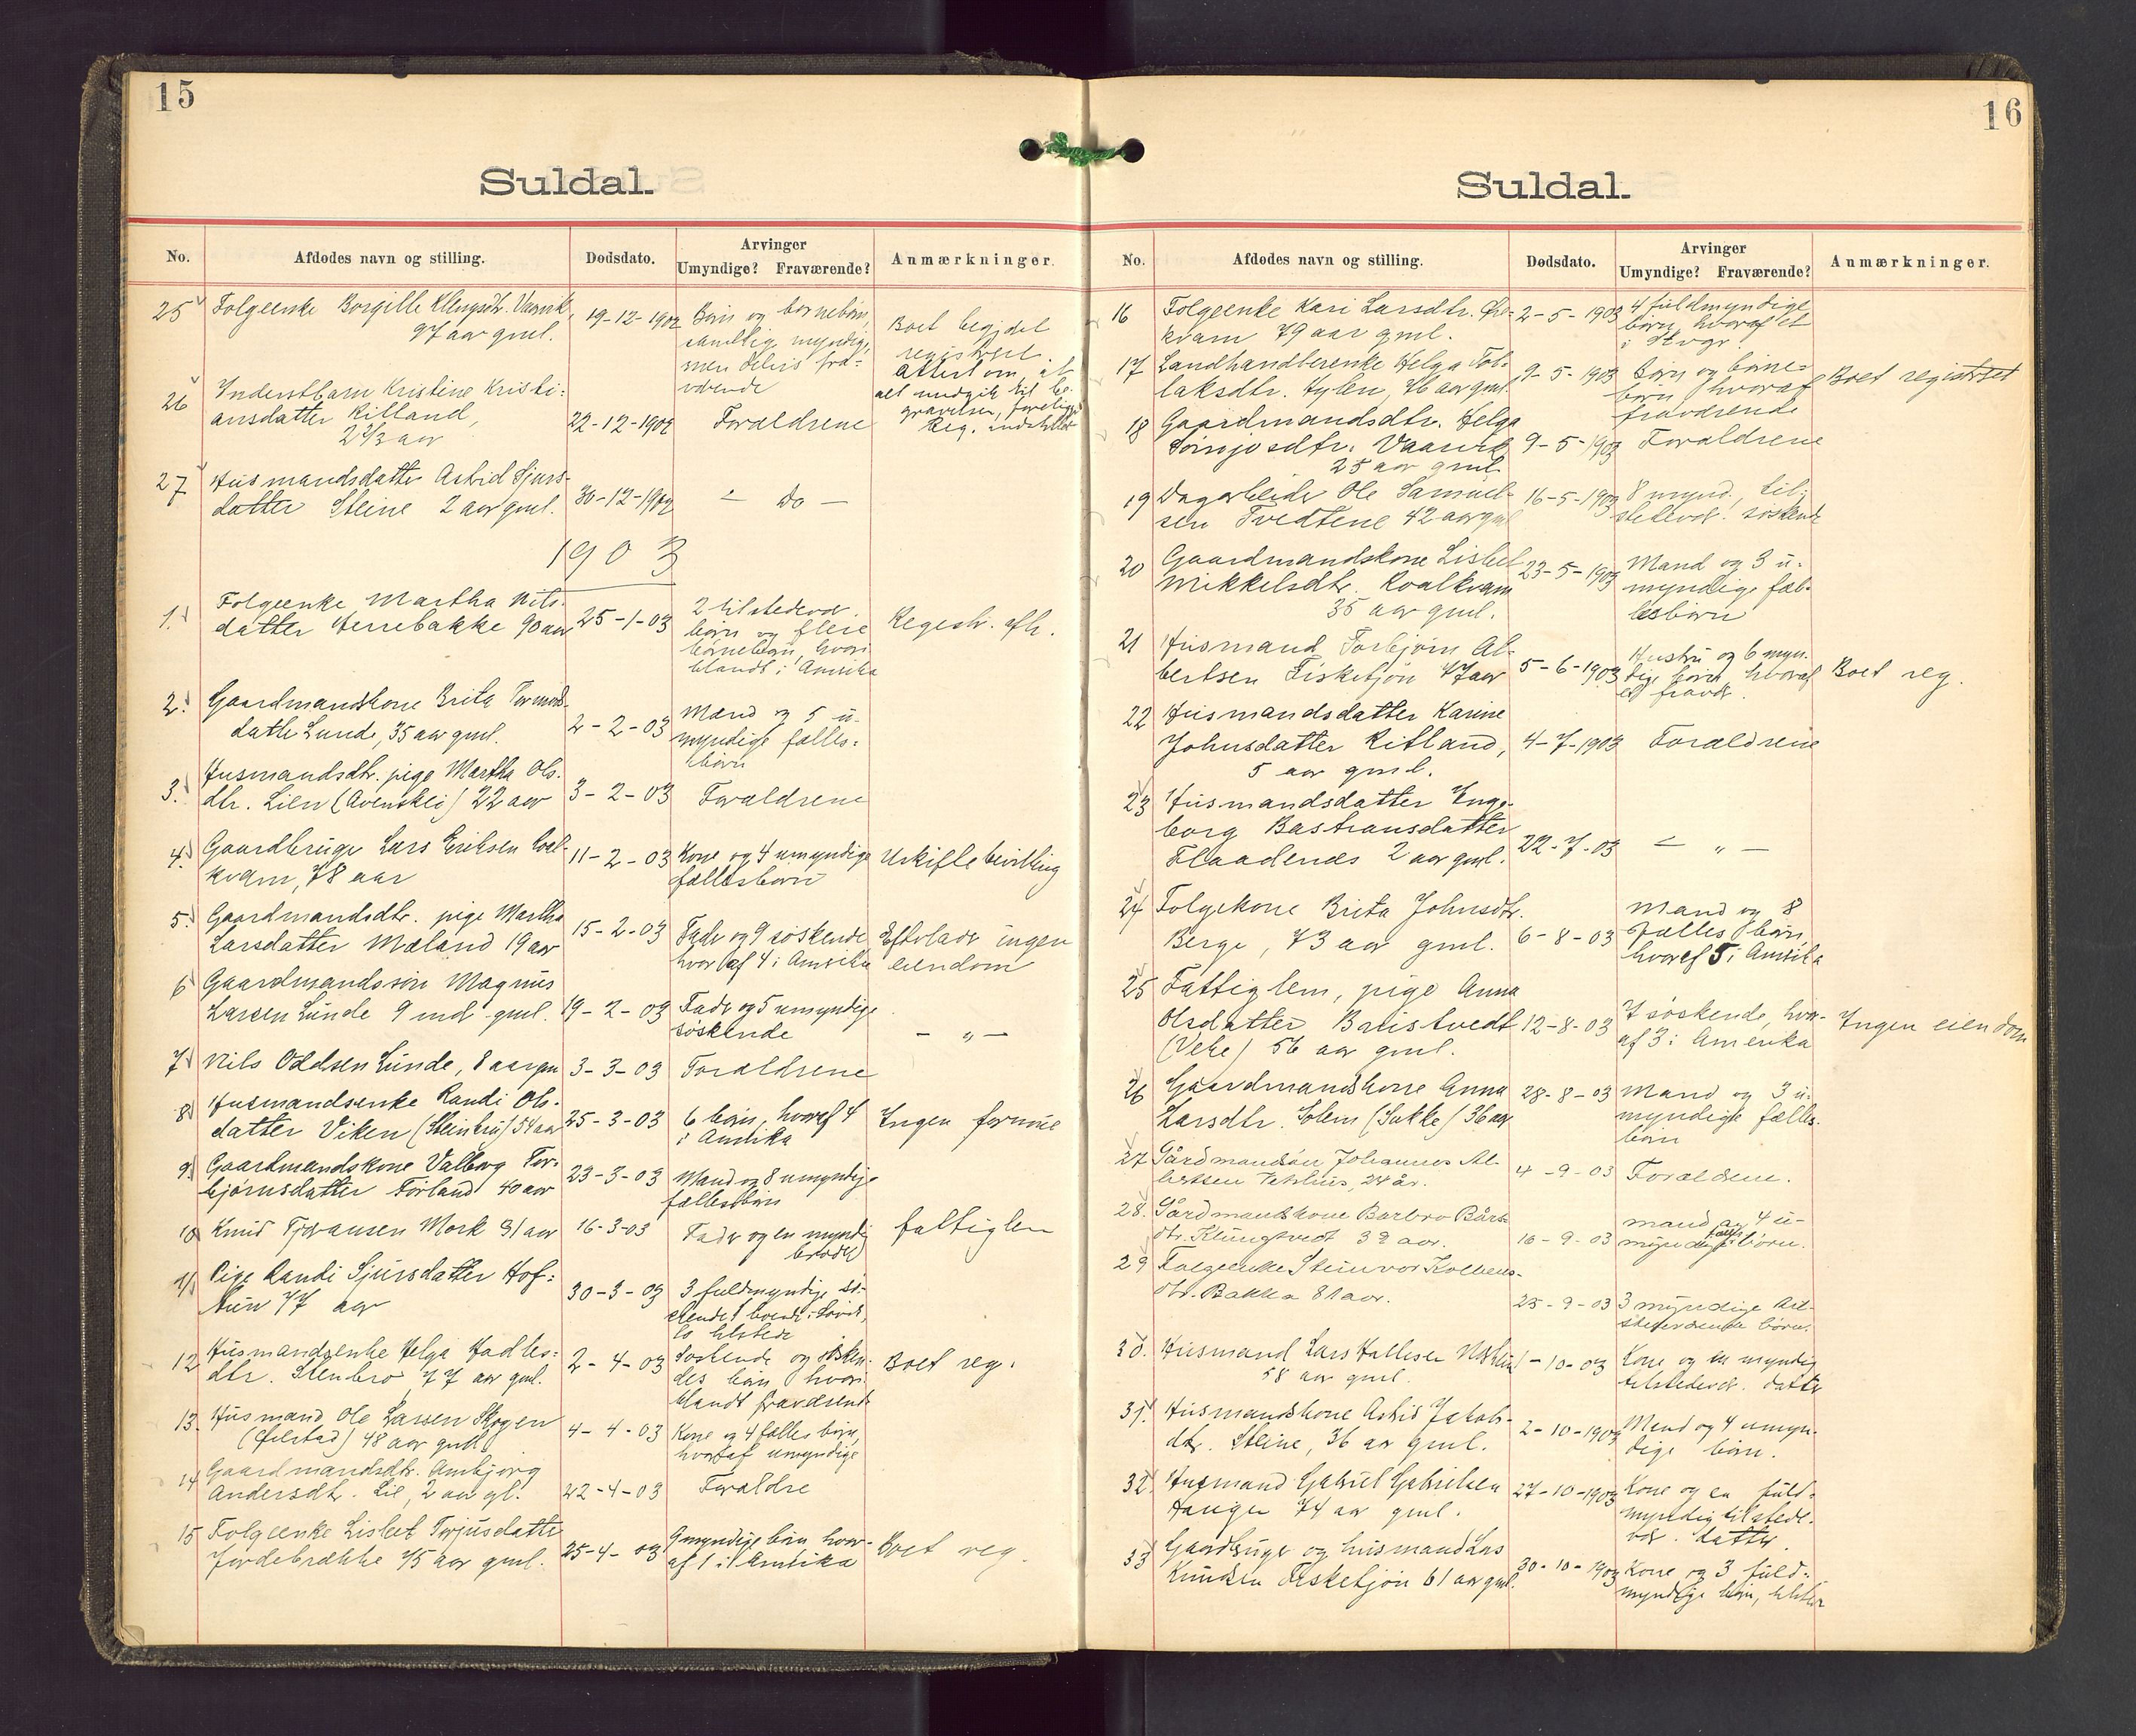 15
Suldal.
No.
Afdødes navn og stilling.
Dødsdato.
Arvinger
Umyndige? Fraværende?
Anmærkninger.
25 Folgeenke Borgille 97 aar gml. 19-12-1902 Børn og børnebørn, samtlig myndige, men delvis fraværende
Boet begjæret registreret.
Attest om, at alt medgik til begravelsen, foreligger
26 Inderstbarn Kristine Kristi-
ansdatter Ritland, 22-12-1902 Forældrene
2 2/3 aar
27 Husmandsdatter Astrid Sjurs-
datter Steine 2 aar gml. 30-12-1902 - Do -
1903
1. Folgeenke Martha Nils-
datter Herrebakke 90 aar 25-1-03 2 tilstedevær.
børn og flere
børnebørn, hvori-
blandt i Amerika
Regestr. afh.
2. Gaardmandskone Brita Tormods-
datter Lunde, 35 aar gml. 2-2-03 Mand og 5 u-
myndige fælles-
børn
3. Husmandsdtr. pige Martha Ols-
dtr. Lien (Avenskei) 22 aar 3-2-03 Forældrene
4. Gaardbruger Lars Eriksen
kvam, 78 aar 11-2-03 Kone og 4 umyndige
fællesbørn
Uskiftebevilling
5. Gaardmandsdtr. pige Martha
Larsdatter Mæland 19 aar 15-2-03 Fader og 9 søskende
hvoraf 4 i Amerika
Efterlader ingen
eiendom
6 Gaardmandssøn Magnus
Larsen Lunde 9 md. gml. 19-2-03 Fader og 5 umyndige
søskende
- „ -
7 Nils Oddsen Lunde, 8 aar gm 3-3-03 Forældrene
8 Husmandsenke Randi Ols-
datter Viken (Steinkru) 54 aar 25-3-03 6 børn, hvoraf 4
i Amerika
Ingen formue
9. Gaardmandskone Valborg Tor-
bjørnsdatter Førland 40 aar 23-3-03 Mand og 8 umyndige
fællesbørn
10 Knud Mork 31 aar 16-3-03 Fader og en myndig
broder
fattiglem
11 Pige Randi Sjursdatter Hof-
tun 77 aar 30-3-03 3 fuldmyndige sø-
skende 1
to tilstede
12 Husmandsenke Helga Hadles-
dtr. Stenbro 77 aar gml. 2-4-03 Søskende og søsken-
des børn hvori-
blandt fraværende
Boet reg.
13. Husmand Ole Larsen Skogen
48 aar gml. 4-4-03 Kone og 4 fælles børn,
hvoraf umyndige
14 Gaardmandsdtr. Ambjørg
Andersdtr. Lie, 2 aar gl. 22-4-03 Forældre
15 Folgeenke Lisbet Torjusdatter
Jordebrække 75 aar gml. 25-4-03 9 myndige børn hvor-
af 1 i Amerika
Boet reg.
16
Suldal.
No.
Afdødes navn og stilling.
Dødsdato.
Arvinger
Umyndige? Fraværende?
Anmærkninger.
16 Folgeenke Kari Larsdtr. Øre-
kvam 79 aar gml. 2-5-1903 4 fuldmyndige
børn, hvoraf et
i
17 Landhandlerenke Helga Tol-
laksdtr. Hylen, 76 aar gml. 9-5-1903 Børn og børne-
børn, hvoraf
fraværende
Boet registret
18 Gaardmandsdtr. Helga
Vaarvik 9-5-1903 Forældrene
25 aar gml.
19 Dagarbeider Ole Samuel-
sen Tvedtene 42 aar gml 16-5-1903 8 mynd., til-
stedevær. søskende
20 Gaardmandskone Lisbet
Mikkelsdtr. Roalkvam 23-5-1903 Mand og 3 u-
myndige fæl-
lesbørn
35 aar gml.
21 Husmand Torbjørn Al-
bertsen Fisketjøn 47 aar 5-6-1903 Hustru og 6 myn-
dige børn, hvoraf
et fravær.
Boet reg.
22 Husmandsdatter Karine
Johnsdatter Ritland, 4-7-1903 Forældrene
5 aar gml.
23 Husmandsdatter Inge-
borg Bastiansdatter
Flaadenes 2 aar gml. 22-7-03 - „ -
24 Folgekone Brita Johnsdtr.
Berge, 73 aar gml. 6-8-03 Mand og 8
fælles børn,
hvoraf 5 i Amerika
25 Fattiglem, pige Anna
Olsdatter Bautstvedt 12-8-03 7 søskende, hvor-
af 3 i Amerika
(Vehe) 56 aar gml.
Ingen eiendom
26 Gaardmandskone Anna
Larsdtr. Solem (Sukke) 36 aar 28-8-03 Mand og 3 u-
myndige fælles-
børn
27 Gårdmandsøn Johannes Al-
bertsen 24 år. 4-9-03 Forældrene.
28. Gårdmandskone Barbro Bårds-
dtr. Klungtvedt 32 aar. 16-9-03 mand og 4 u-
myndige fælles børn.
29 Folgeenke Steinvor Kolbens-
dtr. Bakka 81 aar. 25-9-03 3 myndige til-
stedeværende børn.
30. Husmand Lars Hallesen
58 aar gml. 1-10-03 Kone og en myndig
tilstedevær. datter
31. Husmandskone Astrid Jakobs-
dtr. Steine, 36 aar gml. 2-10-1903 Mand og 4 umyn-
dige børn.
32 Husmand Gabriel Gabrielsen
Hauge 74 aar gml. 27-10-1903 Kone og en fuld-
myndig tilstede-
vær. datter.
33 Gaardbruger og husmand Lars
Knudsen Fisketjøn 61 aar gml. 30-10-1903 Kone og 3 fuld-
myndige børn, tilstedevær